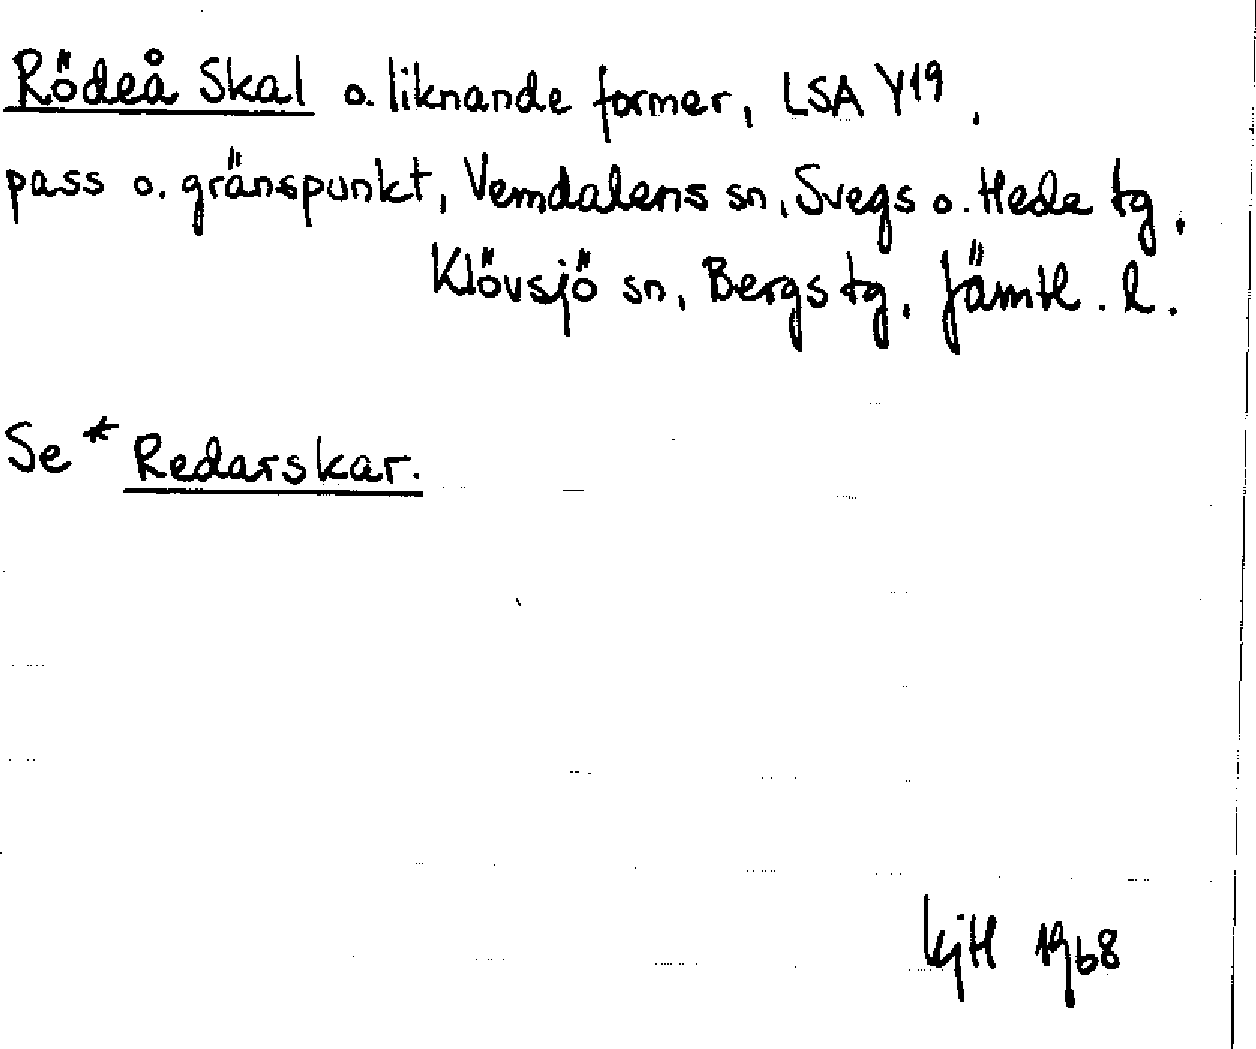 Rödeå Skal o. liknande former, LSA Y19,
pass o. gränspunkt, Vemdalens sn, Svegs o. Hede tg,
Klövsjö sn, Bergs tg, Jämtl. l.
Se * Redarskar.
KjH 1968